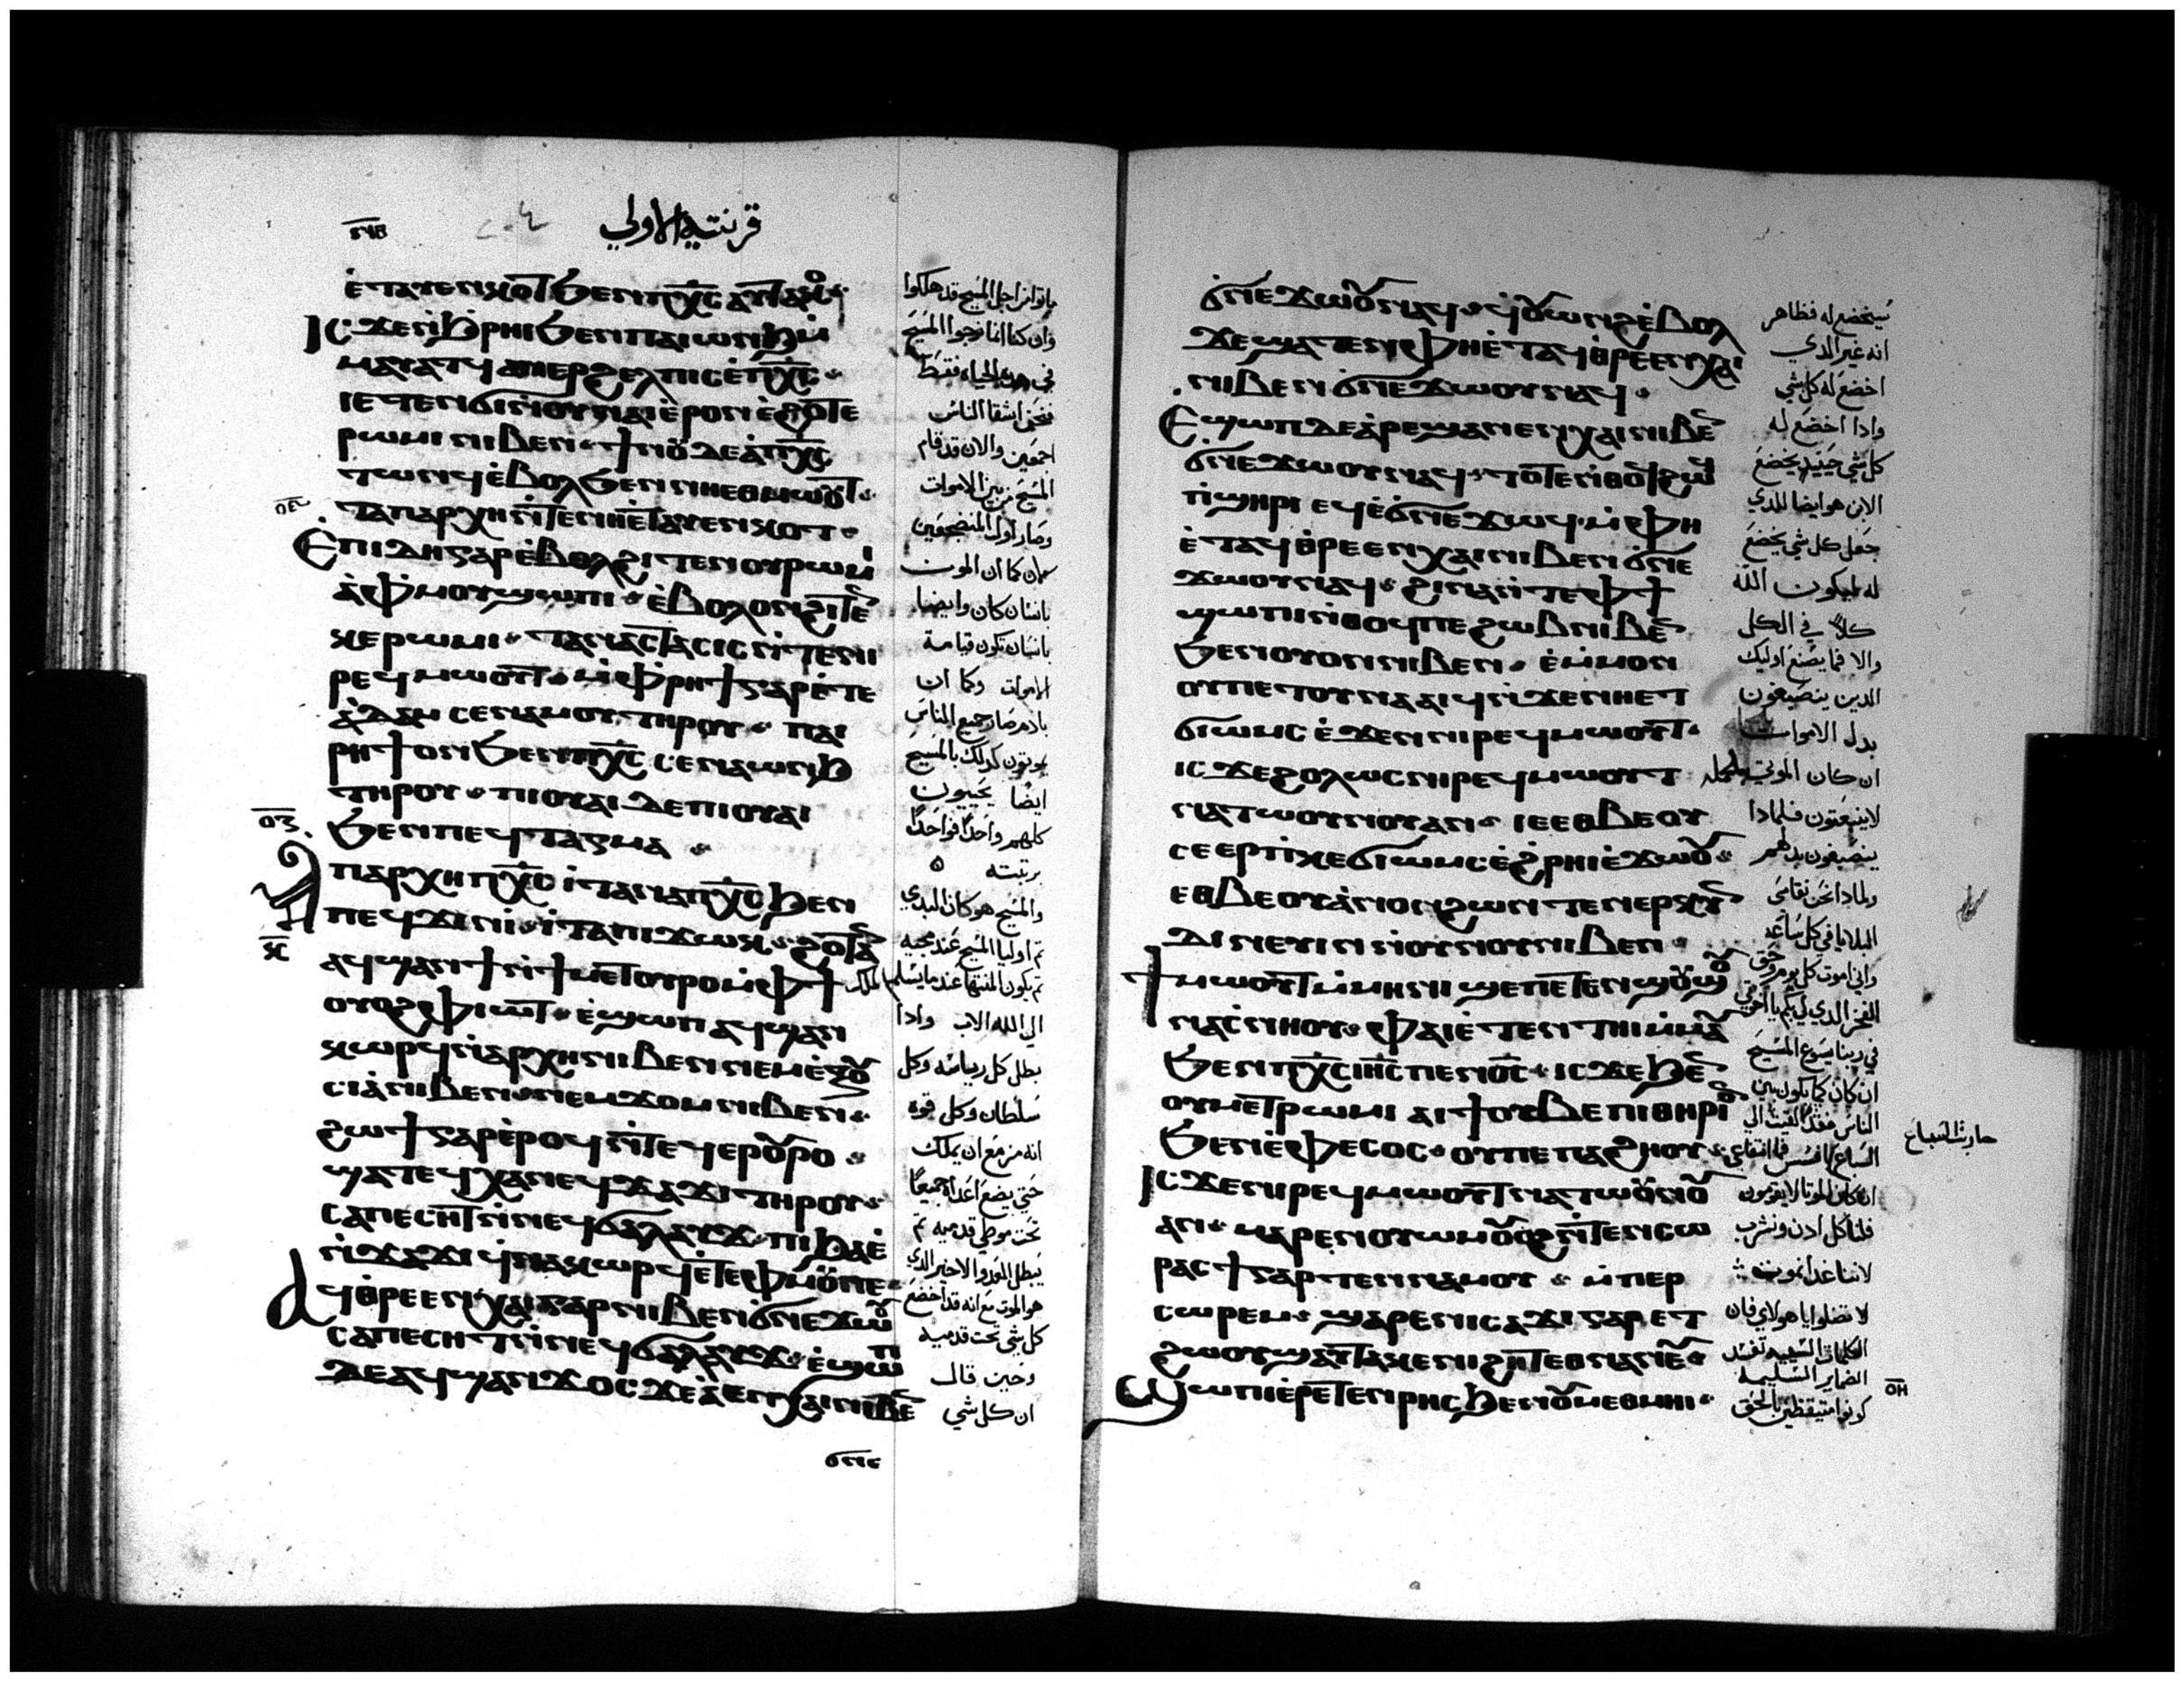 قرنتيه الاولي
ⲉ̇ⲧⲁⲩⲉⲛⲕⲟⲧ ϧⲉⲛ ⲡⲭ̅ⲥ̅ ⲁⲩⲧⲁⲕⲟ
ⲓⲥϫⲉ ⲛ̇ϩ̇ⲣⲏⲓ ϧⲉⲛ ⲡⲁⲓⲱⲛϧ ⲙ̇
ⲙⲁⲩⲁⲧϥ ⲁⲛⲉⲣϩⲉⲗⲡⲓⲥ ⲉ̇ⲡⲭ̅ⲥ̅
ⲓⲉ ⲧⲉⲛϭⲓ ⲛ̇ⲟⲩⲛⲁⲓ ⲉ̇ⲣⲟⲛ ⲉ̇ϩⲟⲧⲉ
ⲣⲱⲙⲓ ⲛⲓⲃⲉⲛ ϯⲛⲟⲩ ⲇⲉ ⲁ̇ ⲡⲭ̅ⲥ̅
ⲧⲱⲛϥ ⲉ̇ⲃⲟⲗ ϧⲉⲛ ⲛⲏⲉⲑⲙⲱⲟⲩⲧ
ⲧⲁⲡⲁⲣⲭⲏ ⲛ̇ⲧⲉ ⲛⲏⲉ̇ⲧⲁⲩⲉⲛⲕⲟⲧ
ⲉ̇ⲡⲓⲇⲏ ⲅⲁⲣ ⲉ̇ⲃⲟⲗϩⲓⲧⲉⲛ ⲟⲩⲣⲱⲙⲓ
ⲁ̇ ⲫ̇ⲙⲟⲩ ϣⲱⲡⲓ ⲉ̇ⲃⲟⲗ ⲟⲛ ϩⲓⲧⲉⲛ
ⲕⲉⲣⲱⲙⲓ ⲧⲁⲛⲁⲥⲧⲁⲥⲓⲥ ⲛ̇ⲧⲉ ⲛⲓ
ⲣⲉϥⲙⲱⲟⲩⲧ ⲙ̇ⲫⲣⲏϯ ⲅⲁⲣ ⲉ̇ⲧⲉ
ⲁ̇ⲇⲁⲙ ⲥⲉⲛⲁⲙⲟⲩ ⲧⲏⲣⲟⲩ ⲡⲁⲓ
ⲣⲏϯ ⲟⲛ ϧⲉⲛ ⲡⲭ̅ⲥ̅ ⲥⲉⲛⲁⲱⲛϧ
ⲧⲏⲣⲟⲩ ⲡⲓⲟⲩⲁⲓ ⲇⲉ ⲡⲓⲟⲩⲁⲓ
ϧⲉⲛ ⲡⲉϥⲧⲁⲅⲙⲁ
ⲧⲁⲡⲁⲣⲭⲏ ⲡⲭ̅ⲥ̅ ⲓⲧⲁ ⲛⲁ ⲡⲭ̅ⲥ̅ ϧⲉⲛ
ⲡⲉϥϫⲓⲛⲓ̇ ⲓ̇ⲧⲁ ⲡⲓϫⲱⲕ ϩⲟⲧⲁⲛ
ⲁϥϣⲁⲛϯ ⲛ̇ϯⲙⲉⲧⲟⲩⲣⲟ ⲙ̇ⲫϯ
ⲟⲩⲟϩ ⲫⲓⲱⲧ ⲉ̇ϣⲱⲡ ⲁϥϣⲁⲛ
ⲕⲱⲣϥ ⲛ̇ⲁⲣⲭⲏ ⲛⲓⲃⲉⲛ ⲛⲉⲙ ⲉ̇ⲝⲟⲩ
ⲥⲓⲁ̇ ⲛⲓⲃⲉⲛ ⲛⲉⲙ ϫⲟⲙ ⲛⲓⲃⲉⲛ
ϩⲱϯ ⲅⲁⲣ ⲉ̇ⲣⲟϥ ⲛ̇ⲧⲉϥⲉⲣⲟⲩⲣⲟ
ϣⲁⲧⲉϥⲭⲁ ⲛⲉϥϫⲁϫⲓ ⲧⲏⲣⲟⲩ
ⲥⲁⲡⲉⲥⲏⲧ ⲛ̇ⲛⲉϥϭⲁⲗⲁⲩϫ ⲡⲓϧⲁⲉ̇
ⲛ̇ϫⲁϫⲓ ϥ̇ⲛⲁⲕⲱⲣϥ ⲉ̇ⲧⲉ ⲫⲙⲟⲩ ⲡⲉ
ⲁϥⲑ̇ⲣⲉ ⲉⲛⲭⲁⲓ ⲅⲁⲣ ⲛⲓⲃⲉⲛ ϭⲛⲉϫⲱⲟⲩ
ⲥⲁⲡⲉⲥⲏⲧ ⲛ̇ⲛⲉϥϭⲁⲗⲁⲩϫ ⲉ̇ϣⲱⲡ
ⲇⲉ ⲁϥϣⲁⲛϫⲟⲥ ϫⲉ ⲁ̇ ⲉⲛⲭⲁⲓ ⲛⲓⲃⲉⲛ
ϭⲛⲉ
ماتوا من اجل المسيح قد هلكوا
وان كنا انما نرجوا المسيح
في هذه الحياه فقط
فنحن اشقا الناس
اجمعين والان قد قام
المسيح من بين الاموات
وصار اول المضجعين
كما ان الموت
بانسان كان وايضا
بانسان تكون قيامة
الاموات وكما ان
بادم صار جميع الناس
يموتون كدلك بالمسيح
ايضا يحييون
كلهم واحدا فواحدا
برتبته
والمسيح هو كان البدي
تم اوليا المسيح عند مجيه
تم يكون المنتها عند ما يسلم الملك
الي الله الاب وادا
بطل كل رياسه وكل
سلطان وكل قوه
انه مزمع ان يملك
حتي يضع اعداه جميعا
تحت موطي قدميه تم
يبطل العدو الاخير الدي
هو الموت مع انه قد اخضع
كل شي تحت قدميه
وحين قال
ان كل شي
ϭⲛⲉϫⲱⲟⲩ ⲛⲁϥ ϥ̇ⲟⲩⲱⲛϩ ⲉ̇ⲃⲟⲗ
ϫⲉ ϣⲁⲧⲉⲛ ⲫⲏⲉ̇ⲧⲁϥⲑ̇ⲣⲉ ⲉⲛⲭⲁⲓ
ⲛⲓⲃⲉⲛ ϭ̇ⲛⲉϫⲱⲟⲩ ⲛⲁϥ
ⲉϣⲱⲡ ⲇⲉ ⲁ̇ⲣⲉϣⲁⲛ ⲉⲛⲭⲁⲓ ⲛⲓⲃⲉⲛ
ϭ̇ⲛⲉϫⲱⲟⲩ ⲛⲁϥ ⲧⲟⲧⲉ ⲛ̇ⲑⲟϥ ϩⲱϥ
ⲡ̇ϣⲏⲣⲓ ⲉϥⲉ̇ϭⲛⲉϫⲱϥ ⲙ̇ⲫⲏ
ⲉ̇ⲧⲁϥⲑ̇ⲣⲉ ⲉⲛⲭⲁⲓ ⲛⲓⲃⲉⲛ ϭ̇ⲛⲉ
ϫⲱⲟⲩ ⲛⲁϥ ϩⲓⲛⲁ ⲛ̇ⲧⲉ ⲫϯ
ϣⲱⲡⲓ ⲛ̇ⲑⲟϥ ⲡⲉ ϩⲱⲃ ⲛⲓⲃⲉⲛ
ϧⲉⲛ ⲟⲩⲟⲛ ⲛⲓⲃⲉⲛ ⲉ̇ⲙ̇ⲙⲟⲛ
ⲟⲩ ⲡⲉⲧⲟⲩⲛⲁⲁⲓϥ ⲛ̇ϫⲉ ⲛⲏⲉⲧ
ϭⲓⲱⲙⲥ ⲉ̇ϫⲉⲛ ⲛⲓⲣⲉϥⲙⲱⲟⲩⲧ
ⲓⲥϫⲉ ϩⲟⲗⲱⲥ ⲛⲓⲣⲉϥⲙⲱⲟⲩⲧ
ⲛⲁⲧⲱⲟⲩⲛⲟⲩ ⲁⲛ ⲓⲉ ⲉⲑⲃⲉⲟⲩ
ⲥⲉⲉⲣⲡ̇ⲕⲉϭⲓⲱⲙⲥ ⲉ̇ϩ̇ⲣⲏⲓ ⲉ̇ϫⲱⲟⲩ
ⲉⲑⲃⲉⲟⲩ ⲁ̇ⲛⲟⲛ ϩⲱⲛ ⲧⲉⲛⲉⲣⲕⲩⲛ
ⲇⲓⲛⲉⲩⲓⲛ ⲛ̇ⲟⲩⲛⲟⲩ ⲛⲓⲃⲉⲛ
ϯⲙⲱⲟⲩⲧ ⲙ̇ⲙⲏⲛⲓ ϣⲉ ⲡⲉⲧⲉⲛϣⲟⲩϣⲟⲩ
ⲛⲁⲥ̇ⲛⲏⲟⲩ ⲫⲁⲓ ⲉ̇ⲧⲉⲛⲧⲏⲓ ⲙ̇ⲙⲁⲩ
ϧⲉⲛ ⲡⲭ̅ⲥ̅ ⲓⲏ̅ⲥ̅ ⲡⲉⲛⲟ̅ⲥ̅ ⲓⲥϫⲉ ϧⲉⲛ
ⲟⲩⲙⲉⲧⲣⲱⲙⲓ ⲁⲓϯ ⲟⲩⲃⲉ ⲡⲓⲑⲏⲣⲓⲟⲛ
ϧⲉⲛ ⲉ̇ⲫⲉⲥⲟⲥ ⲟⲩ ⲡⲉ ⲡⲁϩⲏⲟⲩ
ⲓⲥϫⲉ ⲛⲓⲣⲉϥⲙⲱⲟⲩⲧ ⲛⲁⲧⲱⲟⲩⲛⲟⲩ
ⲁⲛ ⲙⲁⲣⲉⲛⲟⲩⲱⲙ ⲟⲩⲟϩ ⲛ̇ⲧⲉⲛⲥⲱ
ⲣⲁⲥϯ ⲅⲁⲣ ⲧⲉⲛⲛⲁⲙⲟⲩ ⲙ̇ⲡⲉⲣ
ⲥⲱⲣⲉⲙ ϣⲁⲣⲉ ⲛⲓⲥⲁϫⲓ ⲅⲁⲣ ⲉⲧ
ϩⲱⲟⲩ ϣⲁⲩⲧⲁⲕⲉ ⲛⲓϩⲏⲧ ⲉⲑⲛⲁⲛⲉⲩ
ϣⲱⲡⲓ ⲉ̇ⲣⲉⲧⲉⲛⲣⲏⲥ ϧⲉⲛ ⲟⲩⲙⲉⲑⲙⲏⲓ
سيخضع له فظاهر
انه غير الدي
اخضع له كل شي
وادا اخضع له
كل شي حينيد يخضع
الابن هو ايضا للدي
جعل كل شي يخضع
له ليكون الله
كلا في الكل
والا فما يصنع اوليك
الدين ينصبغون
بدل الاموات
ان كان الموتي
لاينبعتون فلمادا
ينصبغون بدلهم
ولمادا نحن نقاسي
البلايا في كل ساعه
واني اموت كل يوم وحق
الفخر الدي لي بكم يا اخوتي
في ربنا يسوع المسيح
ان كان كما يكون بين
الناس فقد القيت الي
السباع بافسس فما انتفاعي
حاربت السباع
ان كان الموتا لا يقومون
فلناكل ادن ونشرب
لاننا غدا نموت
لا تضلوا ياهولاي فان
الكلمات السييه تفسد
الضماير السليمه
كونوا متيقظين بالحق